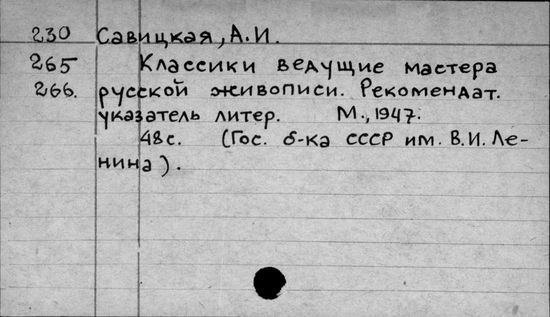 230 Савицкая, А.И.
265 Классики ведущие мастера
266. русской живописи. Рекомендат.
указатель литер. М., 1947.
48с. (Гос. б-ка СССР им. В.И. Ле-
нина).